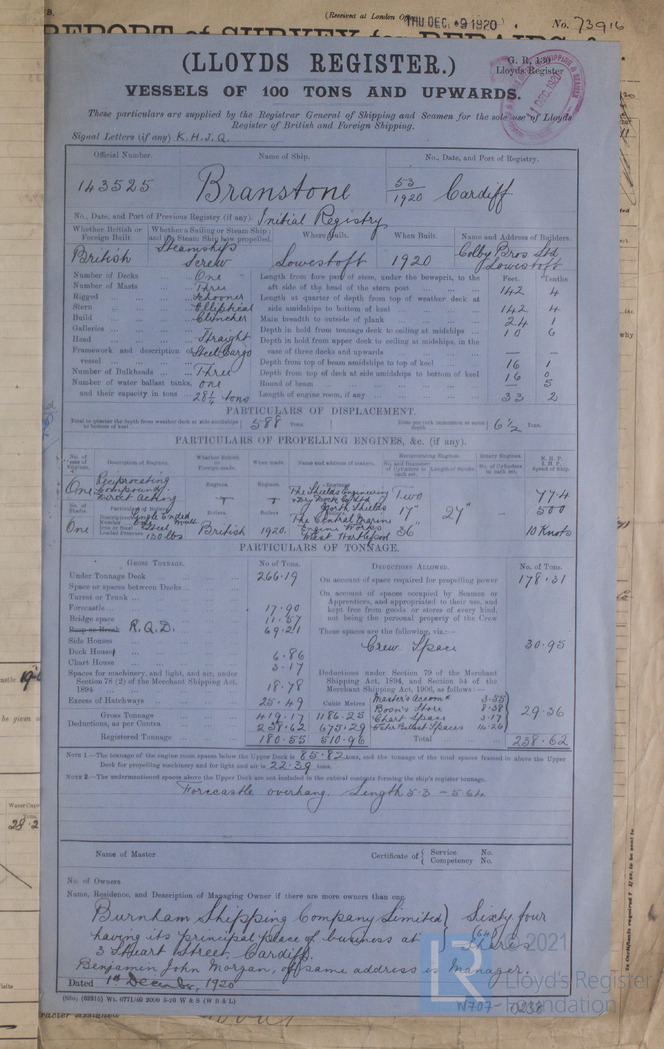 (Received at London
THU DEC. 9 1920
No. 73916
REPORT of SURVEY for REPAIRS
(LLOYDS REGISTER.)
G. R. 130
Lloyds Register
VESSELS OF 100 TONS AND UPWARDS.
These particulars are supplied by the Registrar General of Shipping and Seamen for the sole use of Lloyds
Register of British and Foreign Shipping.
Signal Letters (if any) K.H.J.Q.
Official Number. Name of Ship. No., Date, and Port of Registry.
143525 Branstone 53/1920 Cardiff
No., Date, and Port of Previous Registry (if any). Initial Registry
Whether British or Foreign Built. Whether a Sailing or Steam Ship; and if a Steam Ship how propelled. Where Built. When Built. Name and Address of Builders.
British Steamship Screw Lowestoft 1920 Colby Bros Ltd Lowestoft
Feet. Tenths
Number of Decks One
Number of Masts Three
Rigged Schooner
Stern Elliptical
Build Clencher
Galleries —
Head Straight
Framework and description of vessel Steel Cargo
Number of Bulkheads Three
Number of water ballast tanks, and their capacity in tons One 28 1/4 tons
Length from fore part of stem, under the bowsprit, to the aft side of the head of the stern post 142 4
Length at quarter of depth from top of weather deck at side amidships to bottom of keel 142 4
Main breadth to outside of plank 24 1
Depth in hold from tonnage deck to ceiling at midships 10 6
Depth in hold from upper deck to ceiling at midships, in the case of three decks and upwards — —
Depth from top of beam amidships to top of keel 16 1
Depth from top of deck at side amidships to bottom of keel 16 0
Round of beam — 5
Length of engine room, if any 33 2
PARTICULARS OF DISPLACEMENT.
Total to quarter the depth from weather deck at side amidships to bottom of keel 588 Tons.
Ditto per inch immersion at same depth 6 1/2 Tons.
PARTICULARS OF PROPELLING ENGINES, &c. (if any).
No. of sets of Engines. Description of Engines. Whether British or Foreign made. When made. Name and address of makers. Reciprocating Engines. Rotary Engines. N.H.P. I.H.P. Speed of Ship.
No. and Diameter of Cylinders in each set. Length of Stroke. No. of Cylinders in each set.
One Reciprocating Compound Direct Acting
Engines. Engines. Engines.
The Shields Engineering & Dry Dock Co Ltd North Shields
Two 17" 36" 27" — 77.4 500 10 Knots
No. of Shafts. Particulars of Boilers. Boilers. Boilers. Boilers.
One
Description Single Ended Multi
Number One
Iron or Steel Steel
Loaded Pressure 130 lbs
British 1920. The Central Marine Engine Works West Hartlepool
PARTICULARS OF TONNAGE.
GROSS TONNAGE. No. of Tons. DEDUCTIONS ALLOWED. No. of Tons.
Under Tonnage Deck 266.19
Space or spaces between Decks
Turret or Trunk
Forecastle 17.90
Bridge space 11.57
Poop or Break R.Q.D. 69.21
Side Houses
Deck Houses 6.86
Chart House 3.17
Spaces for machinery, and light, and air, under Section 78 (2) of the Merchant Shipping Act, 1894 18.78
Excess of Hatchways 25.49
Cubic Metres
Gross Tonnage 419.17 1186.25
Deductions, as per Contra 238.62 675.29
Registered Tonnage 180.55 510.96
On account of space required for propelling power 178.31
On account of spaces occupied by Seamen or Apprentices, and appropriated to their use, and kept free from goods or stores of every kind, not being the personal property of the Crew
These spaces are the following, viz.:—
Crew Space 30.95
Deductions under Section 79 of the Merchant Shipping Act, 1894, and Section 54 of the Merchant Shipping Act, 1906, as follows:—
Master's Accomn 3.55
Bosn's Store 8.38
Chart Space 3.17
Water Ballast Spaces 14.26
29.36
Total 238.62
NOTE 1.—The tonnage of the engine room spaces below the Upper Deck is 85.82 tons, and the tonnage of the total spaces framed in above the Upper
Deck for propelling machinery and for light and air is 22.39 tons.
NOTE 2.—The undermentioned spaces above the Upper Deck are not included in the cubical contents forming the ship's register tonnage.
Forecastle overhang. Length 5.3 –
Name of Master Certificate of { Service No. Competency No.
No. of Owners
Name, Residence, and Description of Managing Owner if there are more owners than one
Burnham Shipping Company Limited } Sixty four
having its principal place of business at } (64)
3 Stuart Street, Cardiff. } Shares
Benjamin John Morgan, of same address is Manager.
Dated 1st December, 1920
(62315) Wt. 6771/40 2000 5-20 W B & L
© 2021
LR
Lloyd's Register
Foundation
W707-0238